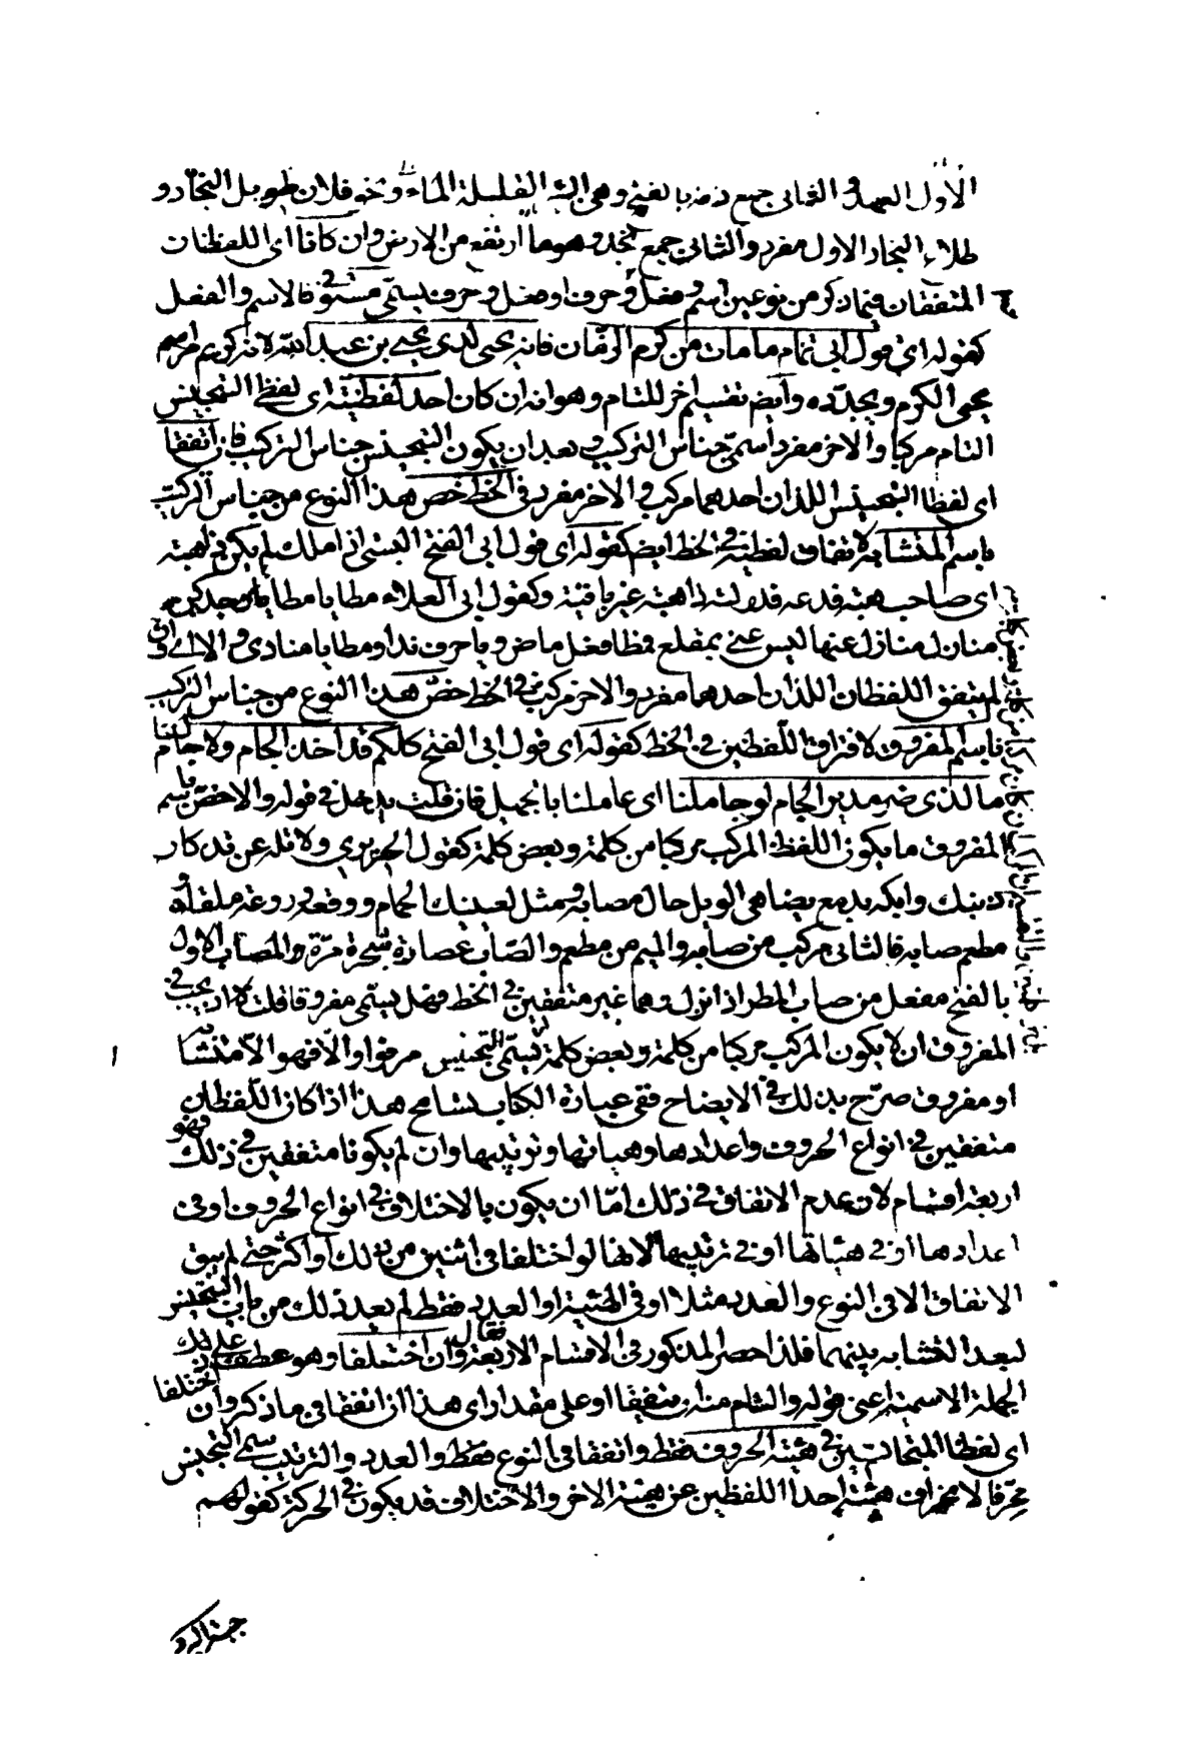 الاول العهد و الثانى جمع ذمة بالفتح وهى البئر القليلة الماء ونحو فلان طويل النجاد و
طلاع النجاد الاول مفرد والثانى جمع نجد وهو ما ارتفع من الارض وان كانا اى اللفظان
المتفقان فيما ذكر من نوعين اسم وفعل او حرف او فعل وحرف يسمى مستوفى كالاسم والفعل
كقوله اى قول ابى تمام ما مات من كرم الزمان فانه يحيى لدى يحيى بن عبد الله لانه كريم
يحيى الكرم ويجدده وايضا تقسيم اخر للتام وهو انه ان كان احد لفظيه اى لفظى التجنيس
التام مركبا والاخر مفردا سمى جناس التركيب وبعد ان يكون التجنيس جناس التركيب فان اتفقا
اى لفظا التجنيس اللذان احدهما مركب والاخر مفرد فى الخط خص هذا النوع من جناس التركيب
باسم المتشابه لاتفاق لفظيه فى الخط ايضا كقوله اى قول ابى الفتح البستى اذا ملك لم يكن ذا هبه
اى صاحب هبة فدعه فدولته ذاهبة غير باقية وكقول ابى العلاء مطايا مطايا وجدكن
منازل منازل عنها ليس عنى بمقلع فمطا فعل ماض ويا حرف ندا ومطايا منادى والا اى وان
لم يتفق اللفظان اللذان احدهما مفرد والاخر مركب فى الخط خص هذا النوع من جناس التركيب
باسم المفروق لافتراق اللفظين فى الخط كقوله اى قول ابى الفتح كلكم قد اخذ الجام ولا جام لنا
ما الذى ضر مدير الجام لو جاملنا اى عاملنا بالجميل فان قلت يدخل فى قوله والا خص باسم
المفروق ما يكون اللفظ المركب مركبا من كلمة وبعض كلمة كقول الحريرى ولا تله عن تذكار
ذنبك وابكه بدمع يضاهى الوبل حال مصابه ومثل لعينك الحمام ووقعه وروعة ملقاه
مطعم صابه فالثانى مركب من صابه والميم من مطعم والصاب عصارة شجرة مرة والمصاب الاول
بالفتح مفعل من صاب المطر اذا نزل وهما غير متفقين فى الخط فهل يسمى مفروقا قلت لا اذ يجب فى
المفروق ان لا يكون المركب مركبا من كلمة وبعض كلمة يسمى التجنيس مرفوا والا فهو اما متشابه
او مفروق صرح بذلك فى الايضاح ففى عبارة الكتاب تسامح هذا اذا كان اللفظان
متفقين فى انواع الحروف واعدادها وهيأتها وترتيبها وان لم يكونا متفقين فى ذلك فهو
اربعة اقسام لان عدم الاتفاق فى ذلك اما ان يكون بالاختلاف فى انواع الحروف او فى
اعدادها او فى هيأتها او فى ترتيبها لانها لو اختلفا فى اثنين من ذلك او اكثر حتى لم يبق
الاتفاق الا فى النوع والعدد مثلا او فى الهيئة او العدد فقط لم يعد ذلك من باب التجنيس
لبعد التشابه بينهما فلذا حصر المذكور فى الاقسام الاربعة فقال وان اختلفا وهو عطف على تلك
الجملة الاسمية اعنى قوله والتام منه ان يتفقا او على مقدر اى هذا ان اتفقا فى ما ذكر وان اختلفا
اى لفظا المتجانسين فى هيئة الحروف فقط واتفقا فى النوع فقط والعدد والترتيب سمى التجنيس
محرفا لانحراف هيئة احد اللفظين عن هيئة الاخر والاختلاف قد يكون فى الحركة كقولهم